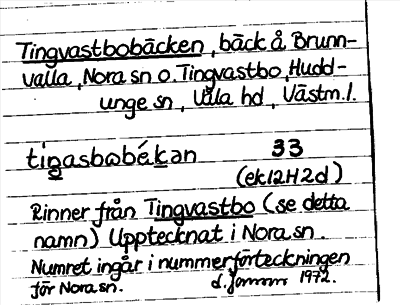 Tingvastbobäcken, bäck å Brunn-
valla, Nora sn o. Tingvastbo, Hudd-
unge sn, Våla hd, Västm. l.
tiŋasbωbékən 33
(ek 12H2d)
Rinner från Tingvastbo (se detta
namn) Upptecknat i Nora sn.
Numret ingår i nummerförteckningen
för Nora sn. 1972.